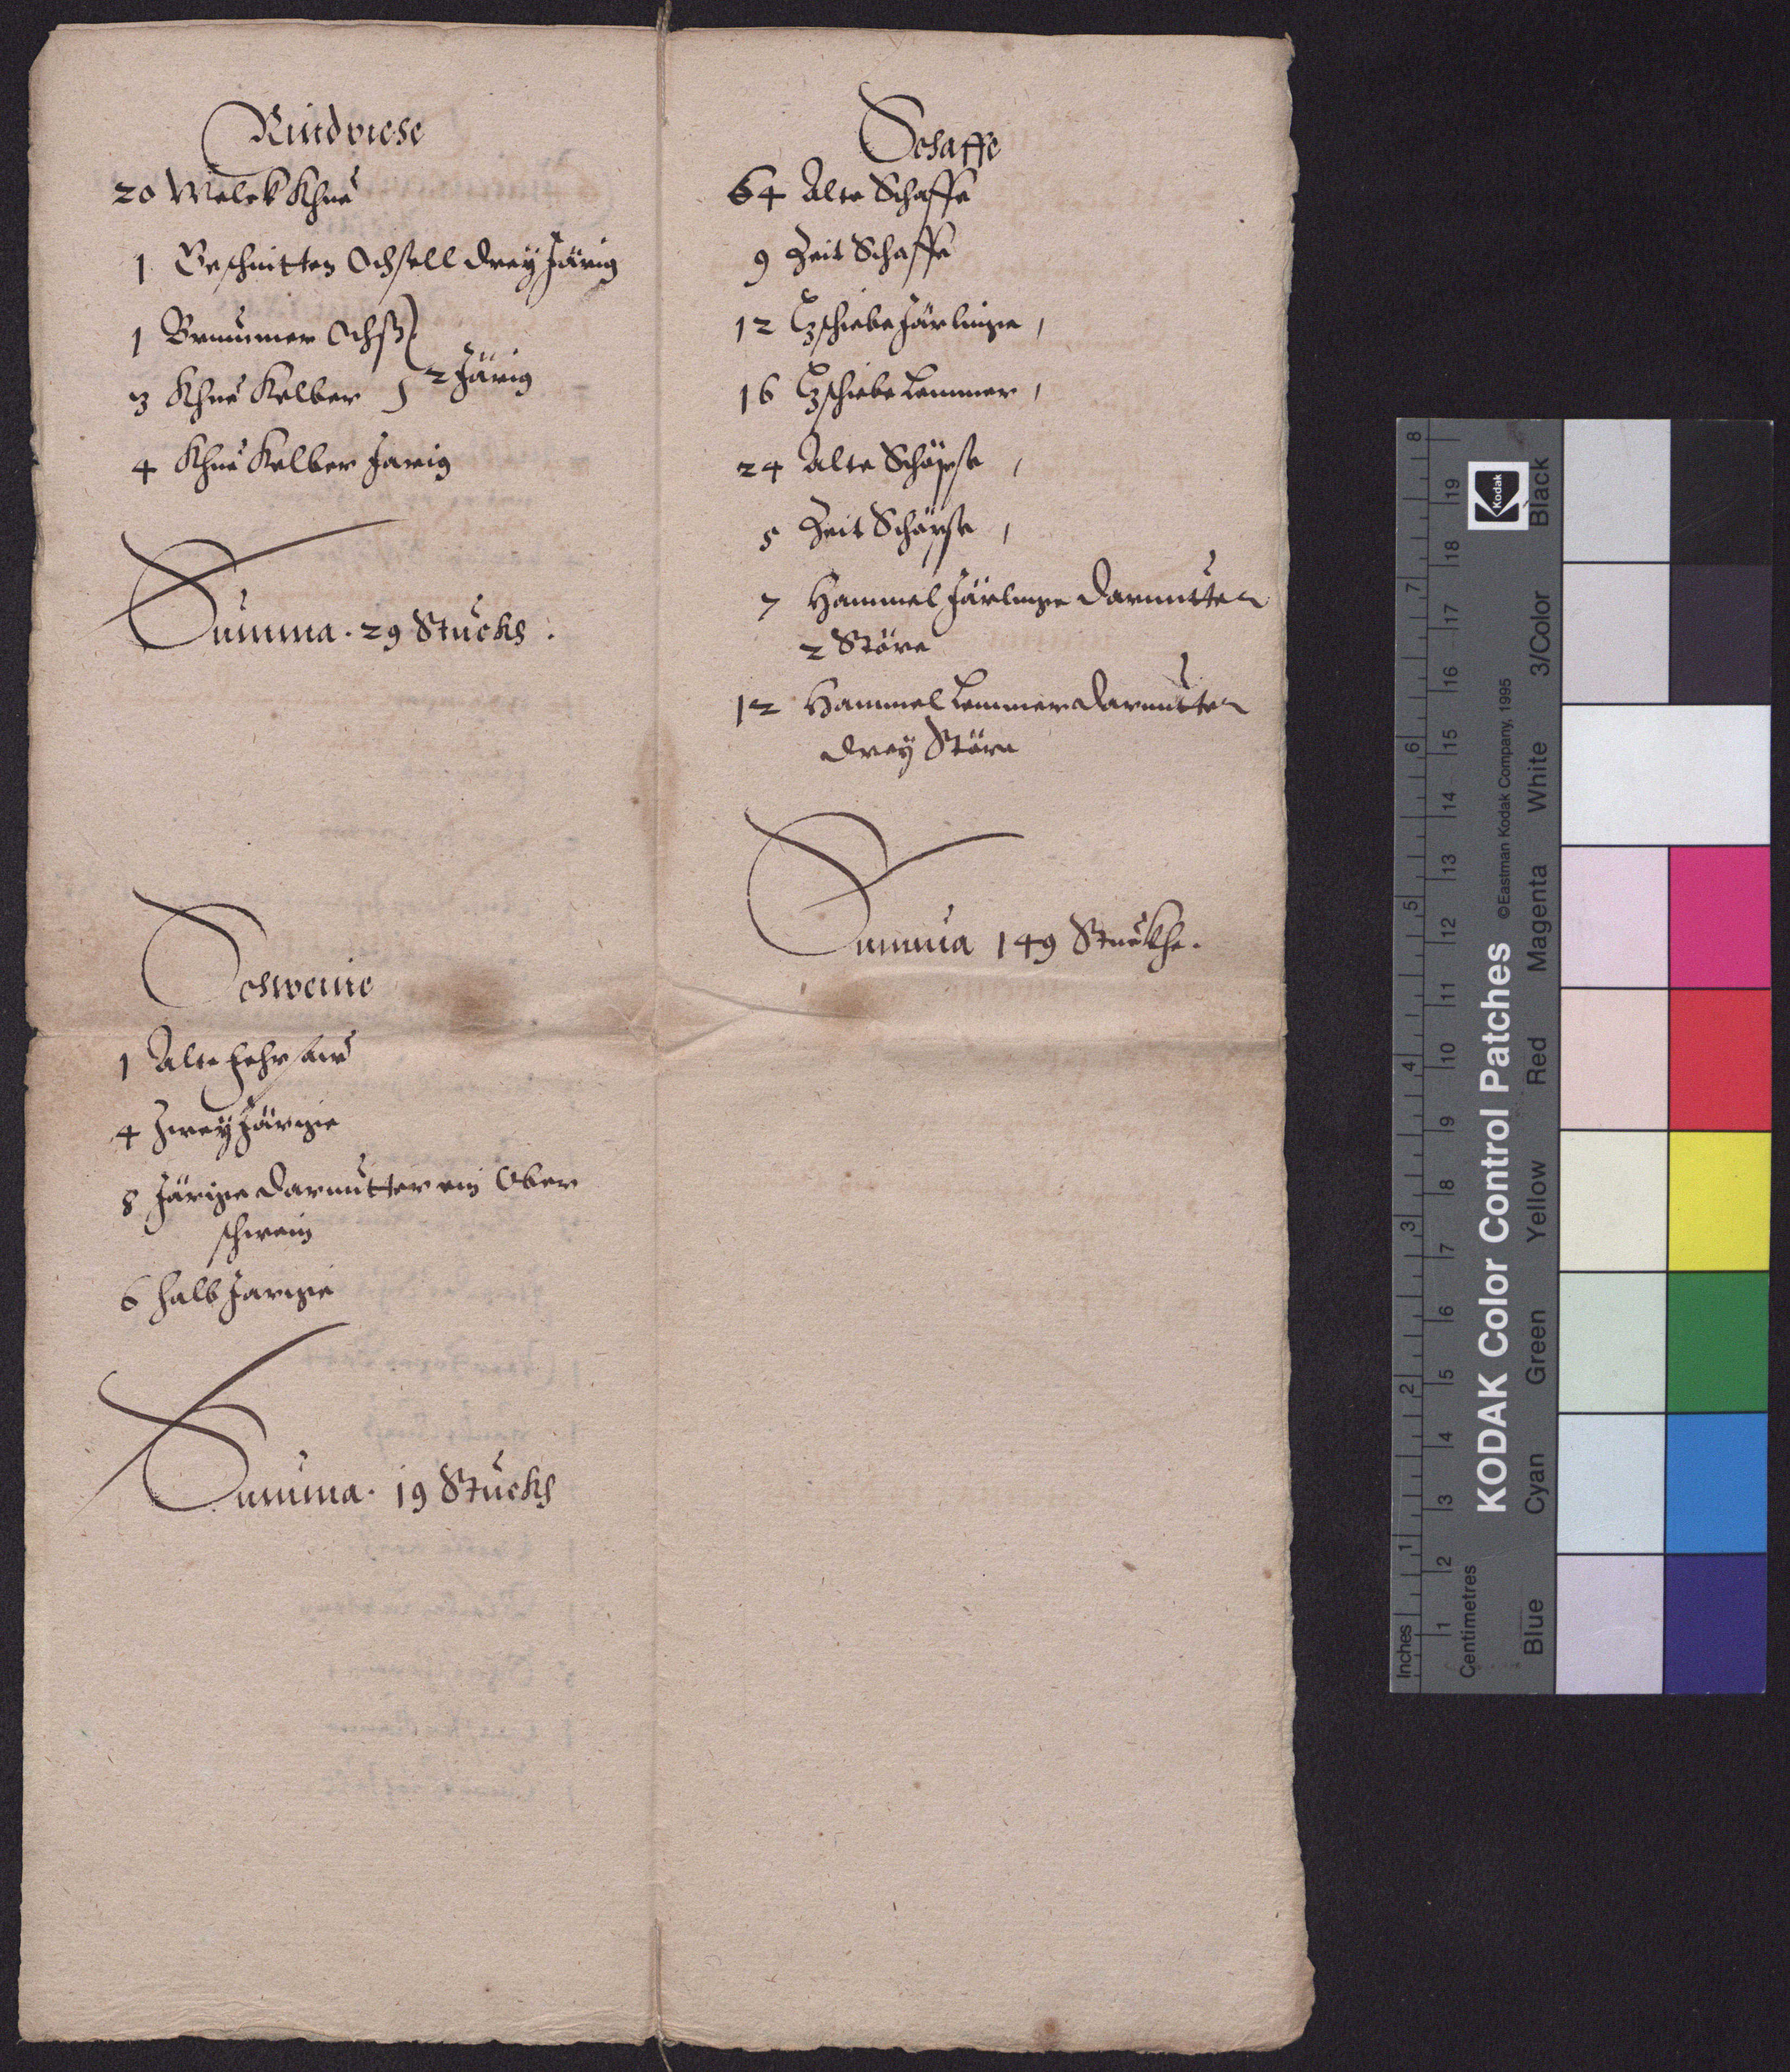 Rindviehe
20 Melck Khue
1 Beschnitten Ochsell drey Järig
1 Brummer Ochß
3 Khue Kelber } 2 Järig
4 Khue Kelber Jarig
Summa. 29 Stuckh.
Schweine
1 Alte
4 Zwey Järige
8 Järige darunter ein Ober
schwein
6 halb Jarige
Summa. 19 Stuckh
Schaffe
64 Alte Schaffe
9 Zeit Schaffe
12 Zschiebe Järlinge,
16 Zschiebe Lemmer,
24 Alte Schöpse,
5 Zeit Schöpse,
7 Hammel Järlinge darunter
2 Störe
12 Hammel Lemmer darunter
drey Störe
Summa 149 Stuckhe.
KODAK Color Control Patches
©Eastman Kodak Company, 1995
Kodak
Inches 1 2 3 4 5 6 7 8
Centimetres 1 2 3 4 5 6 7 8 9 10 11 12 13 14 15 16 17 18 19
Blue Cyan Green Yellow Red Magenta White 3/Color Black